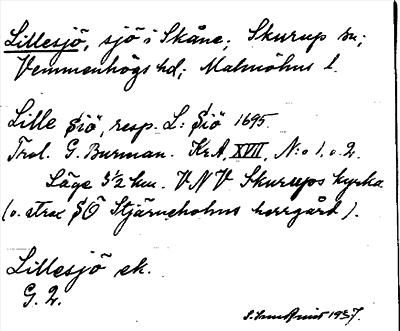 Lillesjö, sjö i Skåne; Skurup sn;
Vemmenhögs hd; Malmöhus l.
Lille Siö, resp. L: Siö 1695.
Trol. G. Burman. KrA, XVII, N:o 1, o. 2.
Läge 3 1/2 km. VNV Skurups kyrka
(o. strax SÖ Stjärneholms herrgård).
Lillesjö ek.
G. 2.
1937.